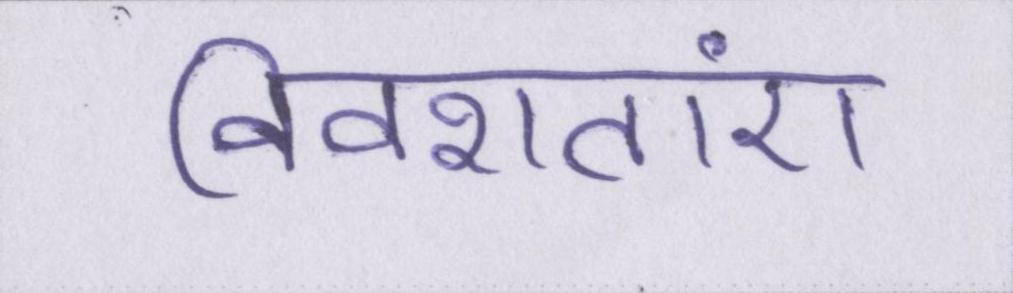 विवशतांए